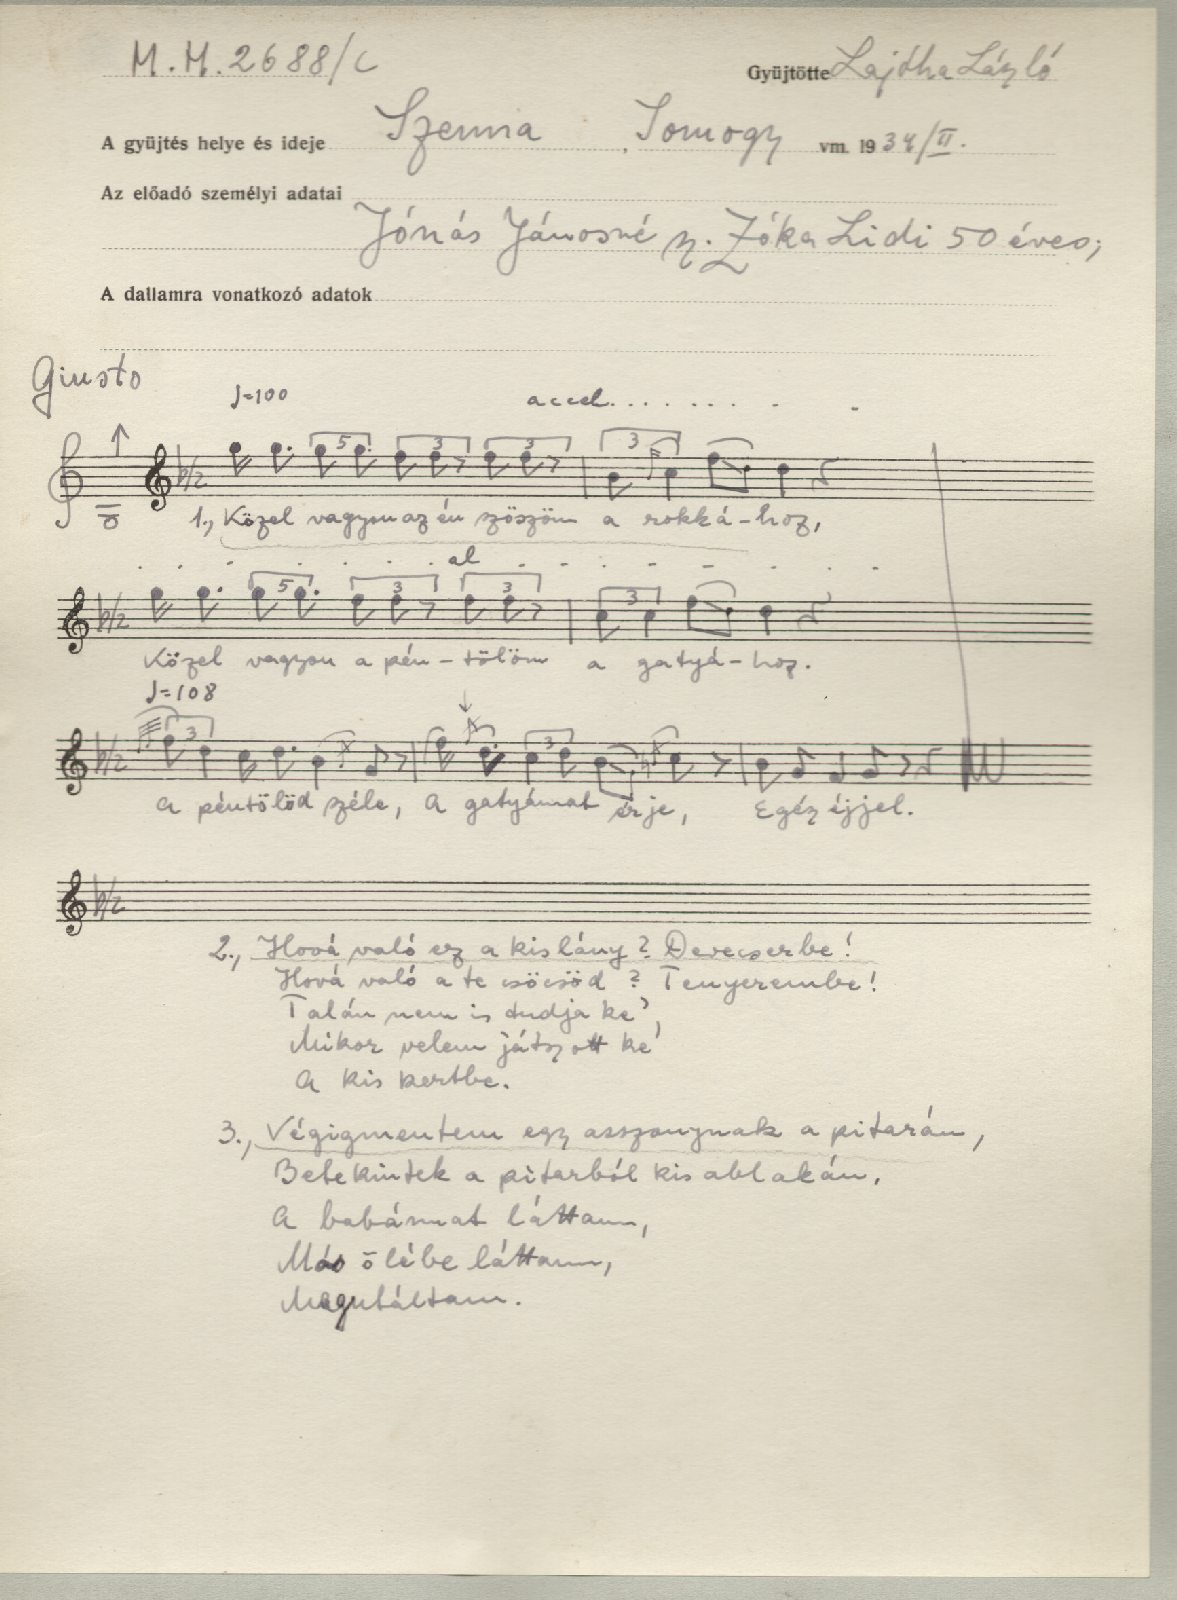 M.H. 2688/c
Gyüjtötte Lajtha László
A gyüjtés helye és ideje Szenna, Somogy vm. 1934/II.
Az előadó személyi adatai
Jónás Jánosné sz. Zóka Lidi 50 éves;
A dallamra vonatkozó adatok
Giusto
♩=100 accel........
5 3 3 3
1., Közel vagyon az én szöszöm a rokká-hoz,
al
5 3 3 3
Közel vagyon a pén-tölöm a gatyá-hoz.
♩=108
3 3
A péntölöd széle, A gatyámat érje, Egész éjjel.
2., Hová való ez a kislány? Devecserbe!
Hová való a te csöcsöd? Tenyerembe!
Talán nem is tudja ke',
Mikor velem játszott ke'
A kis kertbe.
3., Végigmentem egy asszonynak a pitarán,
Betekintek a pitarból kis ablakán.
A babámat láttam,
Más ölébe láttam,
Megutáltam.